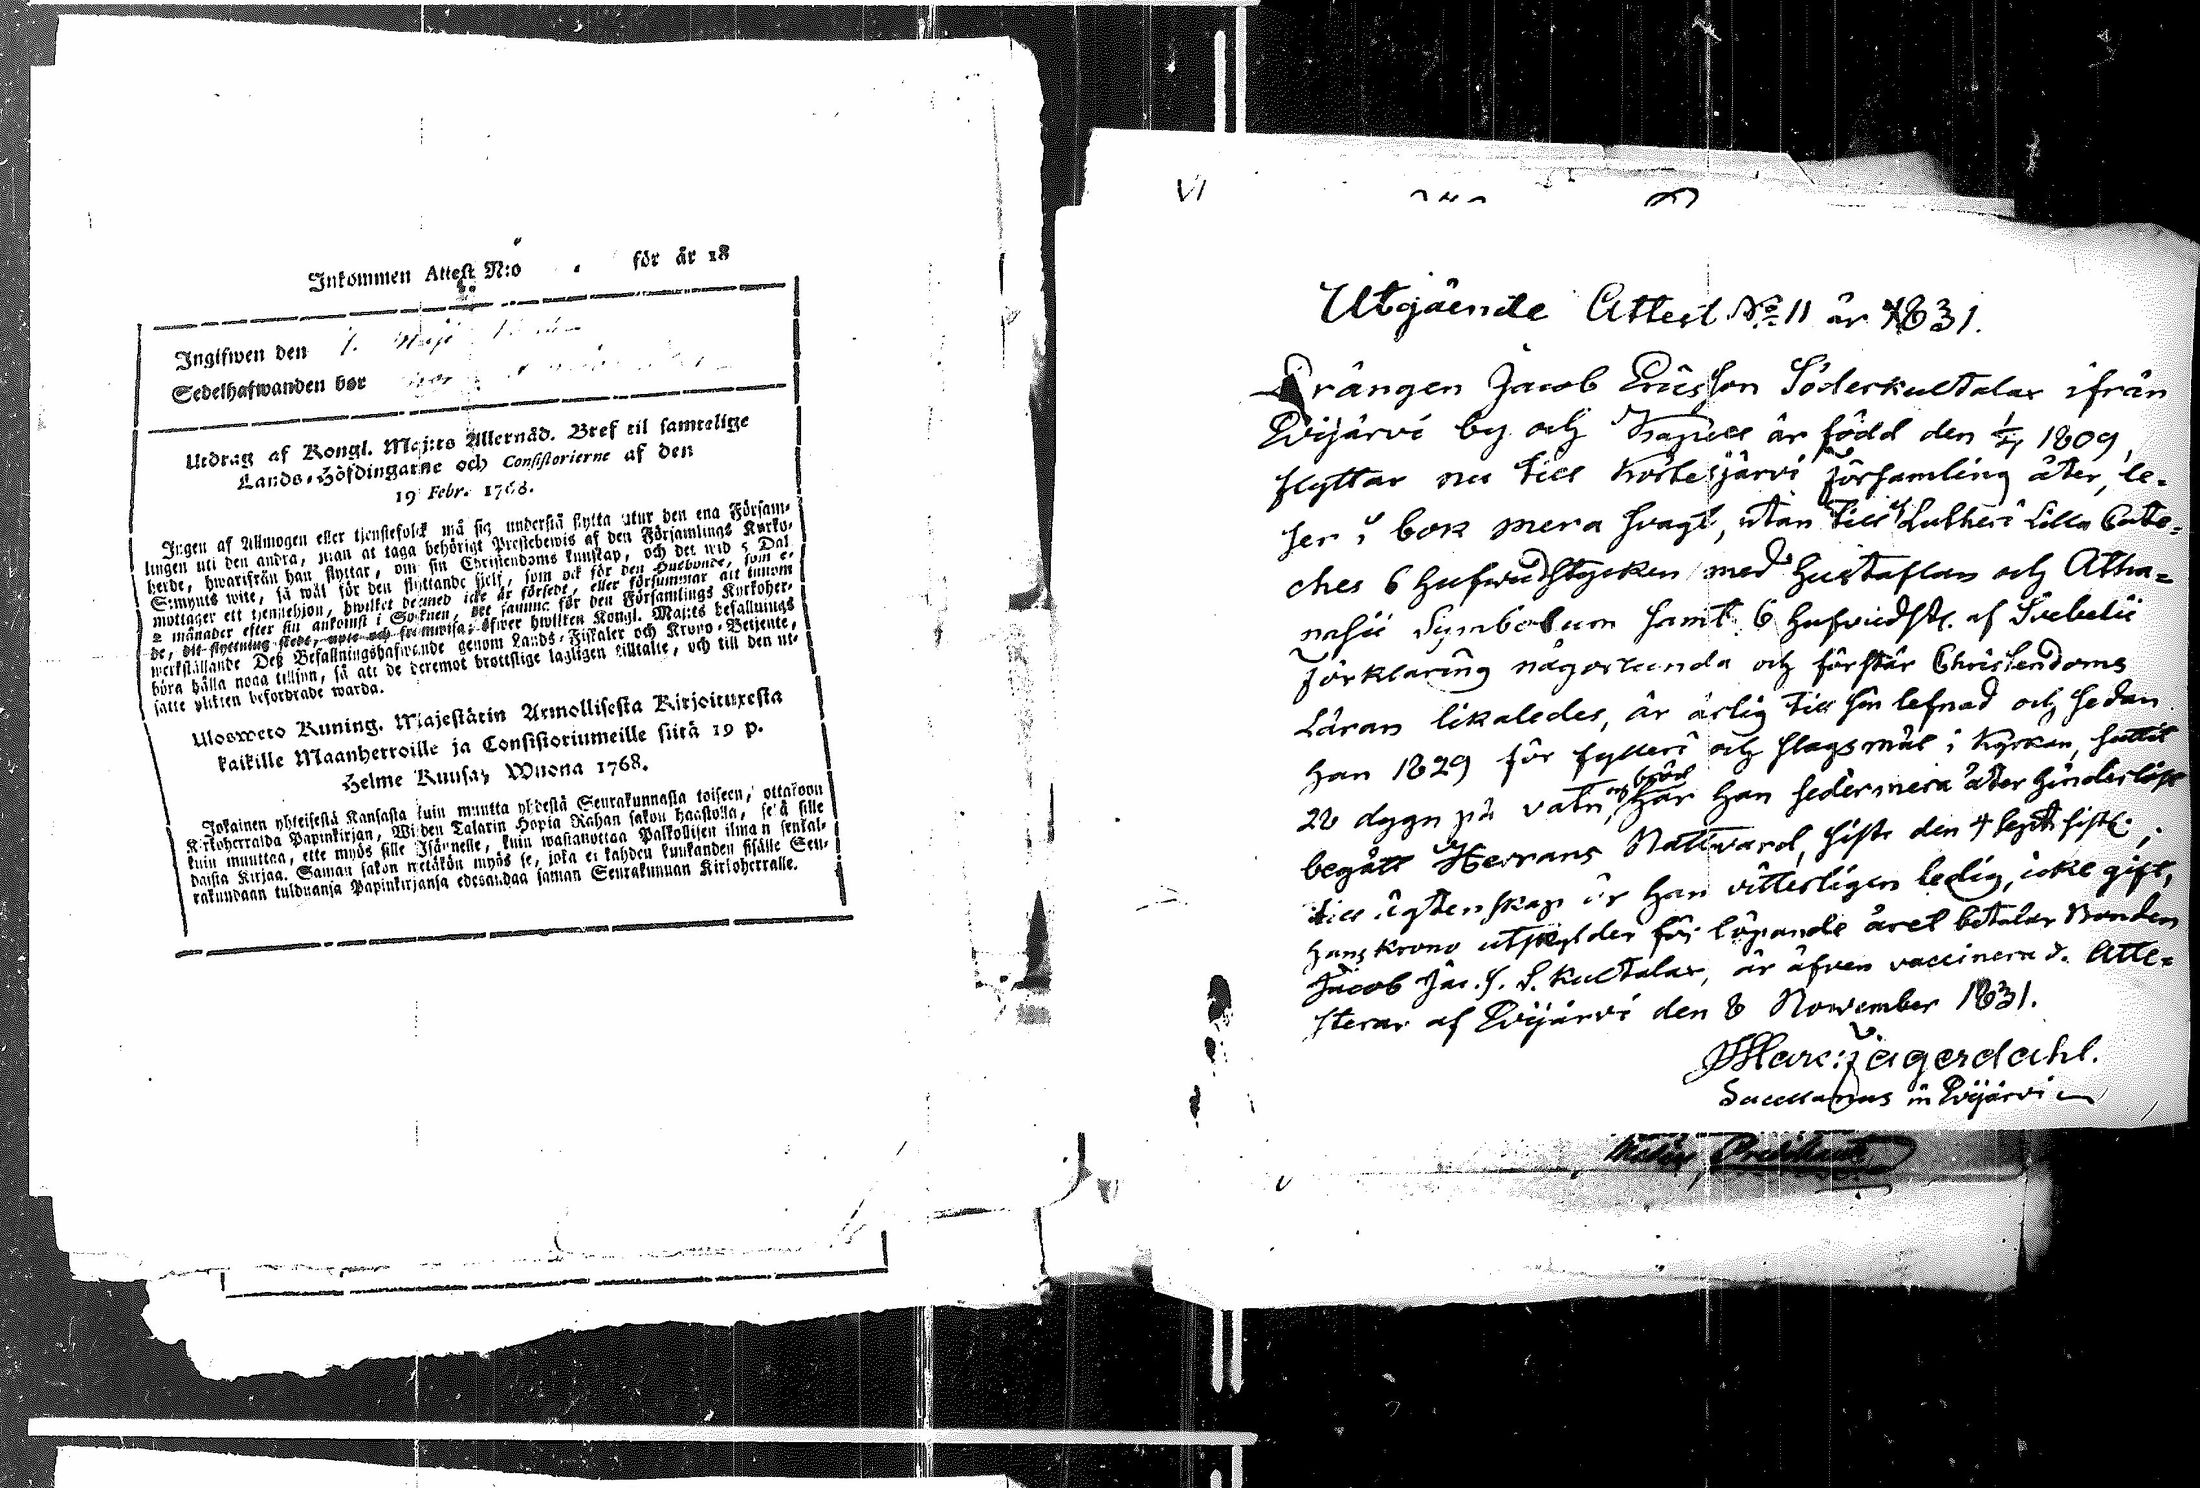 Inkommen Attest N:o för år 18
Ingifwen den 1. Maji
Sedelhafwanden bor
Utdrag af Kongl. Maj:ts Allernåd. Bref til samtelige
Lands-Höfdingarne och Consistorierne af den
19 Febr. 1768.
Ingen af Allmogen eller tjenstefolck må sig understå flytta utur den ena Försam-
lingen uti den andra, utan at taga behörigt Prestebewis af den Församlings Kyrko-
herde, hwarifrån han flyttar, om sin Christendoms kunskap, och det wid 5 Dal.
S:mynts wite, så wäl för den flyttande sjelf, som ock för den Husbonde, som e-
mottager ett tjenstehjon, hwilket dermed icke är försedt, eller försummar att innom
2 månader efter sin ankomst i Socknen, det samma för den Församlings Kyrkoher-
de, dit flyttning skedt, upte och framwisa; öfwer hwilken Kongl. Maj:ts befallnings
werkställande Deß Befallningshafwande genom Lands-Fiskaler och Krono-Betjente,
böra hålla noga tillsyn, så att de deremot brottslige lagligen tilltalte, och till den ut-
satte plikten befordrade warda.
Ulosweto Kuning. Majestätin Armollisesta Kirjoituxesta
kaikille Maanherroille ja Consistoriumeille siitä 19 p.
Helme Kuusa, Wuona 1768.
Jokainen yhteisestä Kansasta kuin muutta yhdestä Seurakunnasta toiseen, ottakoon
Kirkoherralda Papinkirjan, Wiiden Talarin Hopia Rahan sakon haastolla, sekä sille
kuin muuttaa, ette myös sille Isännelle, kuin wastanottaa Palkollisen ilman senkal-
daista Kirjaa. Saman sakon wetäkön myös se, joka ei kahden kuukanden sisälle Seu-
rakundaan tulduansa Papinkirjansa edesandaa saman Seurakunnan Kirkoherralle.
VI
Utgående Attest No 11 år 1831.
Drängen Jacob Ericsson Söderkultalax ifrån
Evijärvi by och Kapell är född den 1/4 1809,
flyttar nu till Kortesjärvi församling åter, le-
ser i bok mera svagt, utan till Lutheri Lilla Cate-
ches 6 hufwudstycken med hustaflan och Atha-
nasii Symbolum samt 6 hufvudst. af Svebelii
förklaring någorlunda och förstår Christendoms
Läran likaledes, är ärlig till sin lefnad och sedan
han 1829 för fylleri och slagsmål i kyrkan, suttit
28 dygn på vatn och bröd, har han sedermera åter hinderlöst
begått Herrans Nattvard, sistr den 4 Sept. sistl.;
till ägtenskap är han vitterligen ledig, icke gift,
hans krono utskylder för löpande året betalar Bonden
Jacob Jac.s. S. kultalax, är äfven vaccinerad. Atte-
sterar af Evijärvi den 8 November 1831.
Marc: Jagerdahl.
Sacellanus in Evijärvi